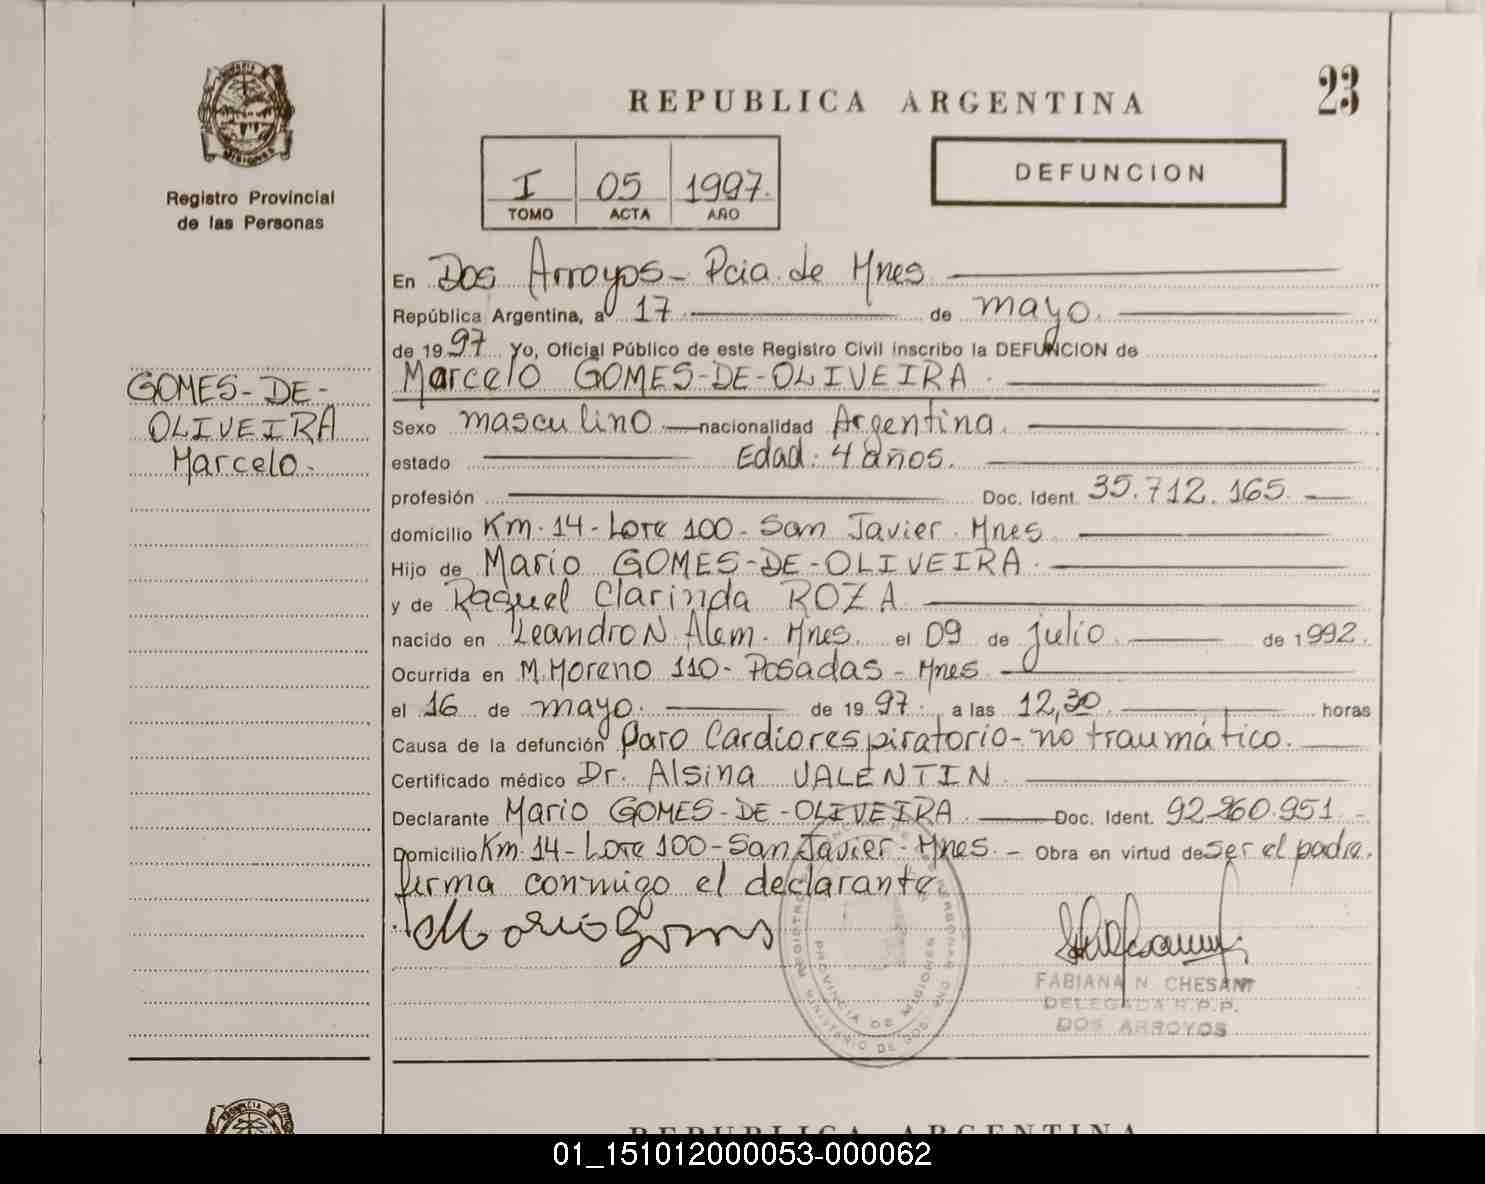 REPUBLICA ARGENTINA
23
MISIONES
Registro Provincial
de las Personas
I 05 1997.
TOMO ACTA AÑO
DEFUNCION
En Dos Arroyos - Pcia. de Mnes
República Argentina, a 17 de mayo.
de 1997 Yo, Oficial Público de este Registro Civil inscribo la DEFUNCION de
Marcelo GOMES-DE-OLIVEIRA.
GOMES-DE-
OLIVEIRA
Marcelo.
Sexo masculino nacionalidad Argentina.
estado Edad: 4 años.
profesión Doc. Ident. 35.712.165.
domicilio Km. 14 - Lote 100 - San Javier. Mnes
Hijo de Mario GOMES-DE-OLIVEIRA.
y de Raquel Clarinda ROZA
nacido en Leandro N. Alem. Mnes. el 09 de julio de 1992.
Ocurrida en M. Moreno 110 - Posadas - Mnes
el 16 de mayo. de 1997. a las 12,30 horas
Causa de la defunción Paro Cardiorespiratorio - no traumático.
Certificado médico Dr. Alsina VALENTIN
Declarante Mario GOMES-DE-OLIVEIRA. Doc. Ident. 92.260.951
Domicilio Km. 14 - Lote 100 - San Javier - Mnes. - Obra en virtud de ser el padre.
firma conmigo el declarante
Mario Gomes
PROVINCIA DE MISIONES
FABIANA N. CHESANI
DELEGADA R.P.P.
DOS ARROYOS
REPUBLICA ARGENTINA
01_151012000053-000062